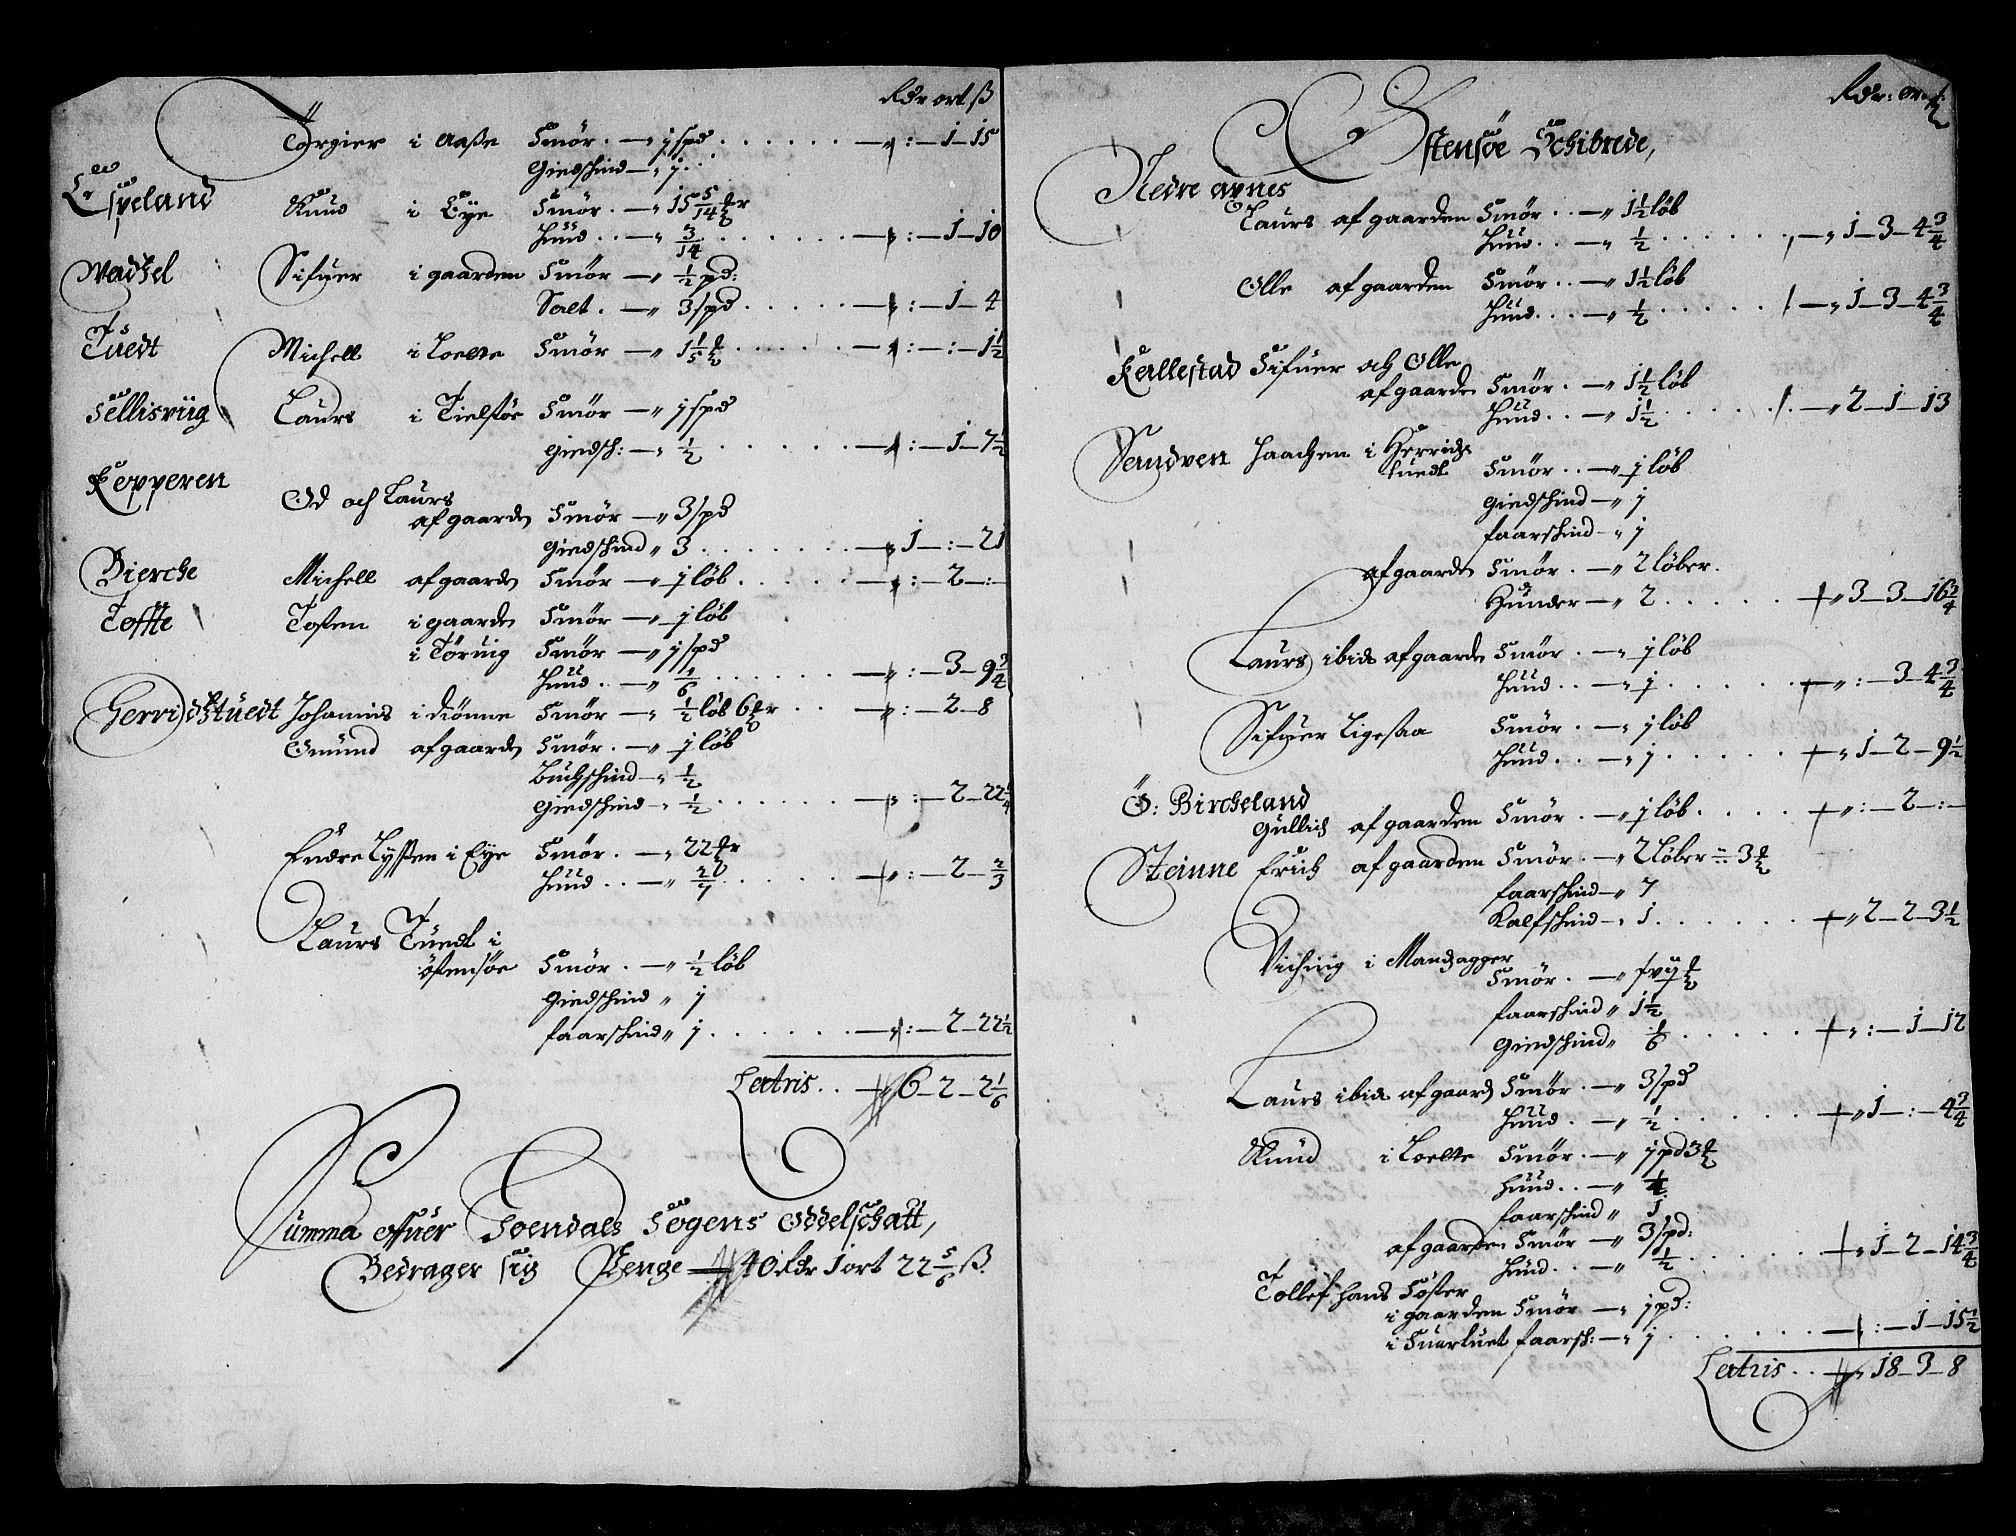 Rdr ort ß
Törgier i Aaße Smör . — „ j spd . . . . . — „ : — 1 — 15
Giedschind — „ j
Espeland Knud i Eye Smör . — „ 15 5/14 ℔r
Huud . . — „ 3/14 . . . . . — „ : — 1 — 10
Wachel Sifuer i gaarden Smör — „ ½ pd:
Salt . — „ 3 spd . . . . . — „ : — 1 — 4
Tuedt Michell i Loelte Smör — „ 1 1/5 ℔ . . . . . — „ : — : — 1½
Sellisviig Laurs i Tielstöe Smör — „ j spd
giedsch: — „ ½ . . . . . — „ : — 1 — 7½
Kepperen
Od och Laurs
af gaarden Smör — „ 3 spd
Giedschind „ 3 . . . . . — „ 1 — : — 21
Bierche Michell af gaarden Smör — „ j löb . . . . — „ : — 2 — : —
Toffte Tosten i gaarden Smör — „ j löb
i Törvig Smör — „ j spd
Huud . — „ 1/6 . . . . . — „ : — 3 — 9¾
Gerridstuedt Johannis i diönne Smör — „ ½ löb 6 ℔r . . — „ : — 2 — 8
Gmund af gaarden Smör . — „ j löb
Buchschind — „ ½
Giedschind — „ ½ . . . . . — „ : — 2 — 22¼
Endre Lyssen i Eye Smör . — „ 22 ℔r
Huud . . — „ 2/7 . . . . . — „ : — 2 — 2/3
Laurs Tuedt i
östensöe Smör . — „ ½ löb
Giedschind „ j
faarschind „ j . . . . . — „ : — 2 — 22½
Latris . . — „ 6 — 2 — 2 1/6
Summa offuer Soendals Sogens Oddelschatt,
Bedrager sig Penge — 40 Rdr 1 ort 22 5/6 ß.
Rdr: ort ß
Östensöe Schibrede,
Nedre avnes
Laurs af gaarden Smör . . — „ 1½ löb
Huud . . — „ ½ . . . . . — „ 1 — 3 — 4¾
Olle af gaarden Smör . . — „ 1½ löb
Huud . . . — „ ½ . . . . . — „ 1 — 3 — 4¾
Kallestad Sifuer och Olle
af gaarden Smör . — „ 1½ löb
Huud . . — „ 1½ . . . . . — „ 2 — 1 — 13
Sandven Haachen i Herrids
tuedt Smör . . — „ j löb
Giedschind — „ j
faarschind — „ j
af gaarden Smör . — „ 2 löber .
Huuder — „ 2 . . . . . — „ 3 — 3 — 16¾
Laurs ibid af gaarden Smör . — „ j löb
Huud . . — „ j . . . . . — „ : — 3 — 4¾
Sifuer Ligesaa Smör . — „ j löb
Huud . . — „ j . . . . . — „ 1 — 2 — 9½
Ö: Bircheland
Gullich af gaarden Smör . — „ j löb . . . . — „ : — 2 — : —
Steinne Erich af gaarden Smör . — „ 2 löber — 3 ℔
faarschind — „ 7
Kalfschind — „ 1 . . . . . — „ 2 — 2 — 3½
Viching i Mandagger
Smör . — „
faarschind „ 1½
Giedschind „ 1/6 . . . . — „ : — 1 — 12
Laurs ibid af gaard Smör . — „ 3 spd
Huud . — „ ½ . . . . . — „ 1 — : — 4¾
Knud i Loelte Smör . — „ j pd 3 ℔
Huud . . — „ ¼
faarschind „ 1
af gaarden Smör — „ 3 spd:
Huud . . — „ ½ . . . . . — „ 1 — 2 — 14¾
Tollef hans Söster
i gaarden Smör — „ j pd:
i Suartuet faarsch: — „ j . . . . . — „ : — 1 — 15½
Latris . . — „ 18 — 3 — 8